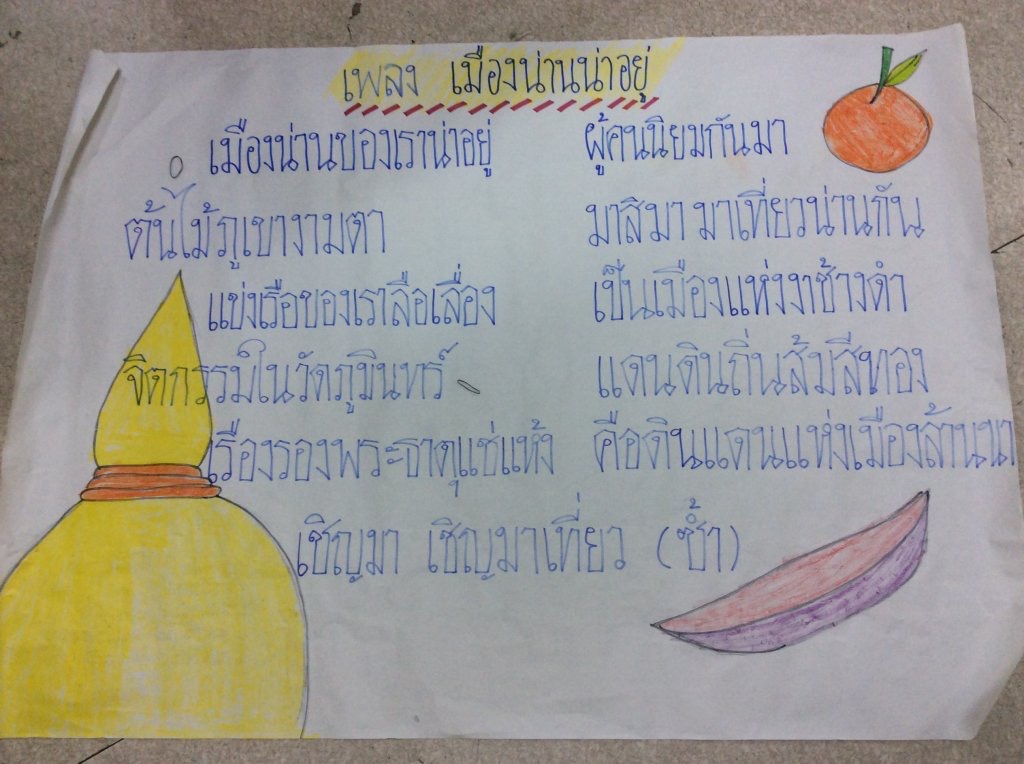 เพลง เมืองน่านน่าอยู่
เมืองน่านของเราน่าอยู่ ผู้คนนิยมกันมา
ต้นไม้ภูเขางามตา มาสิมา มาเที่ยวน่านกัน
แข่งเรือของเราลือเลื่อง เป็นเมืองแห่งงาช้างดำ
จิตกรรมในวัดภูมินทร์ แดนดินถิ่นส้มสีทอง
เรืองรองพระธาตุแช่แห้ง คือดินแดนแห่งเมืองล้านนา
เชิญมา เชิญมาเที่ยว (ซ้ำ)